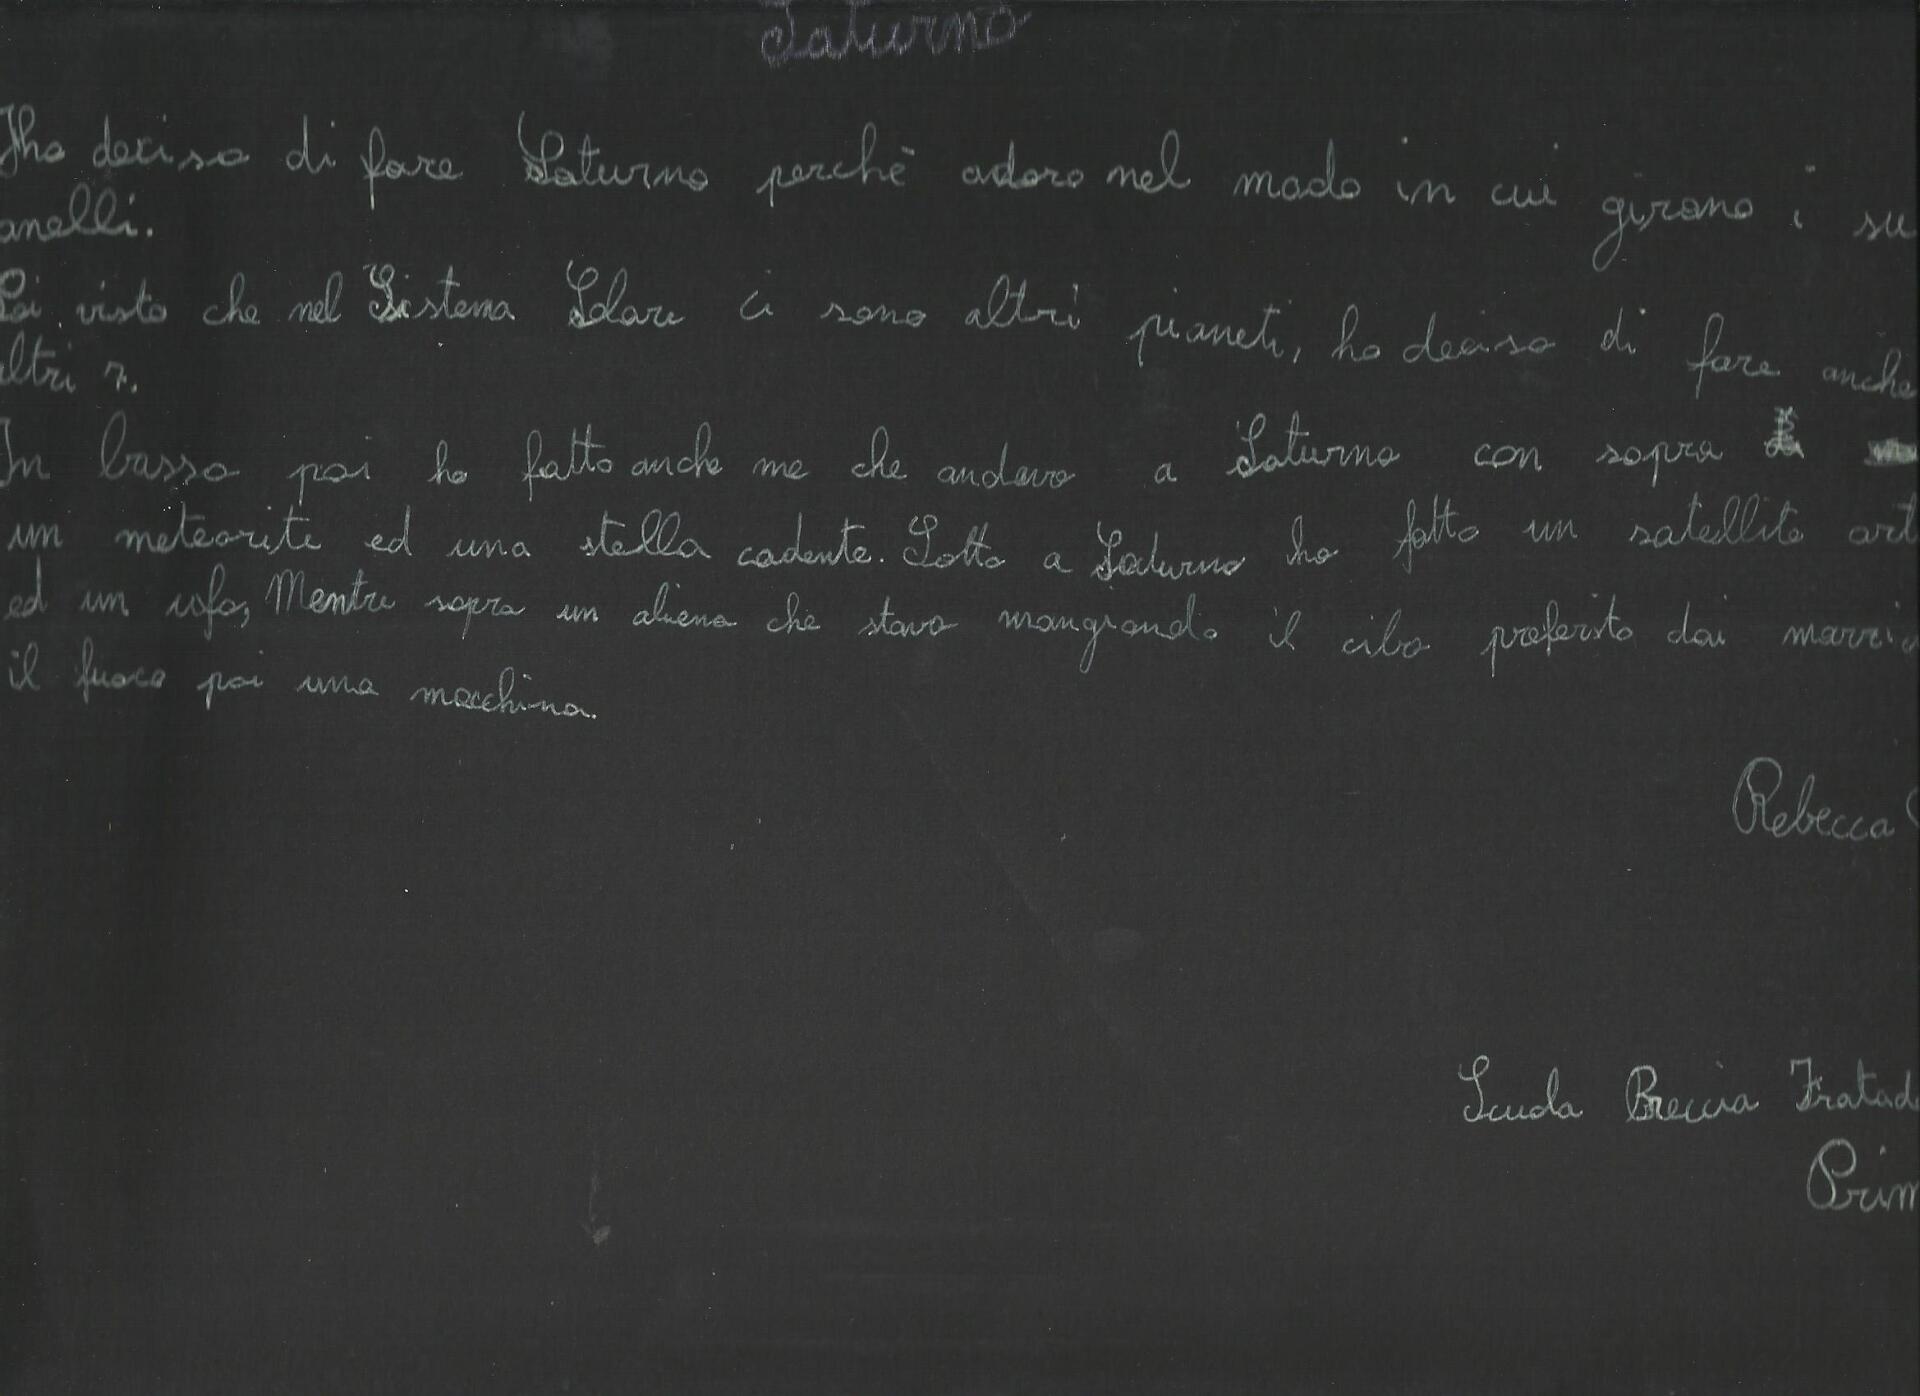 Saturno
Ho deciso di fare Saturno perchè adoro nel modo in cui girano i su
anelli.
Poi visto che nel Sistema Solare ci sono altri pianeti, ho deciso di fare anche
altri 7.
In basso poi ho fatto anche me che andavo a Saturno con sopra
un meteorite ed una stella cadente. Sotto a Saturno ho fatto un satellite art
ed un ufo, Mentre sopra un alieno che stava mangiando il cibo preferito dai
il fuoco poi una macchina.
Rebecca
Scuola Breccia Fratad
Prim